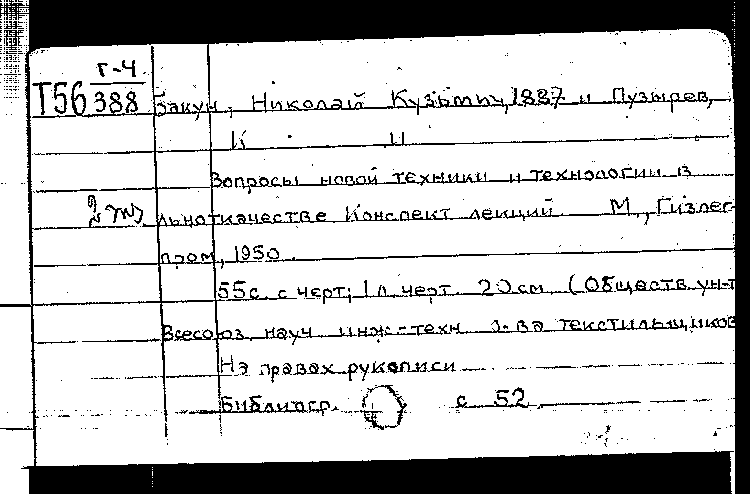 Г-4
Т56 388 Бакун, Николай Кузьмич, 1887 и Пузырев,
К И
Вопросы новой техники и технологии в
2 экз
льноткачестве Конспект лекций М., Гизлег-
пром, 1950.
55с. с черт; 1 л. черт. 20см (Обществ. ун-т
Всесоюз. науч инж-техн о-ва текстильщиков
На правах рукописи
Библиогр. с 52